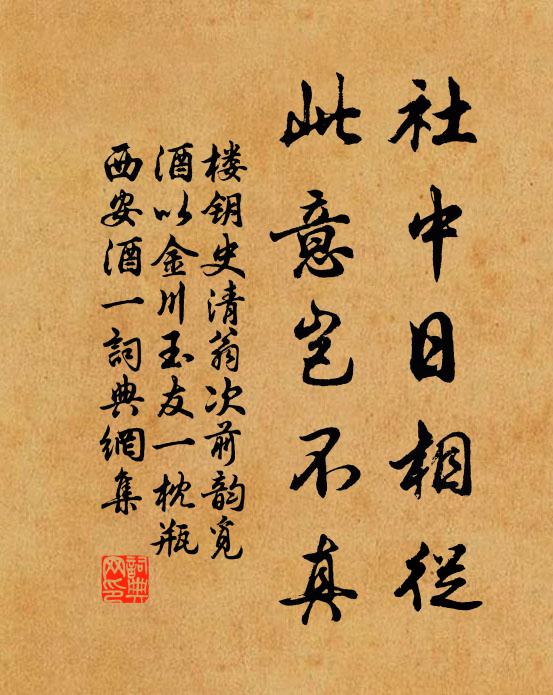 社中日相從
此意岂不真
楼钥史清翁次前韵觅
酒以金川玉友一枕瓶
西安酒一詞典網集
詞典網印